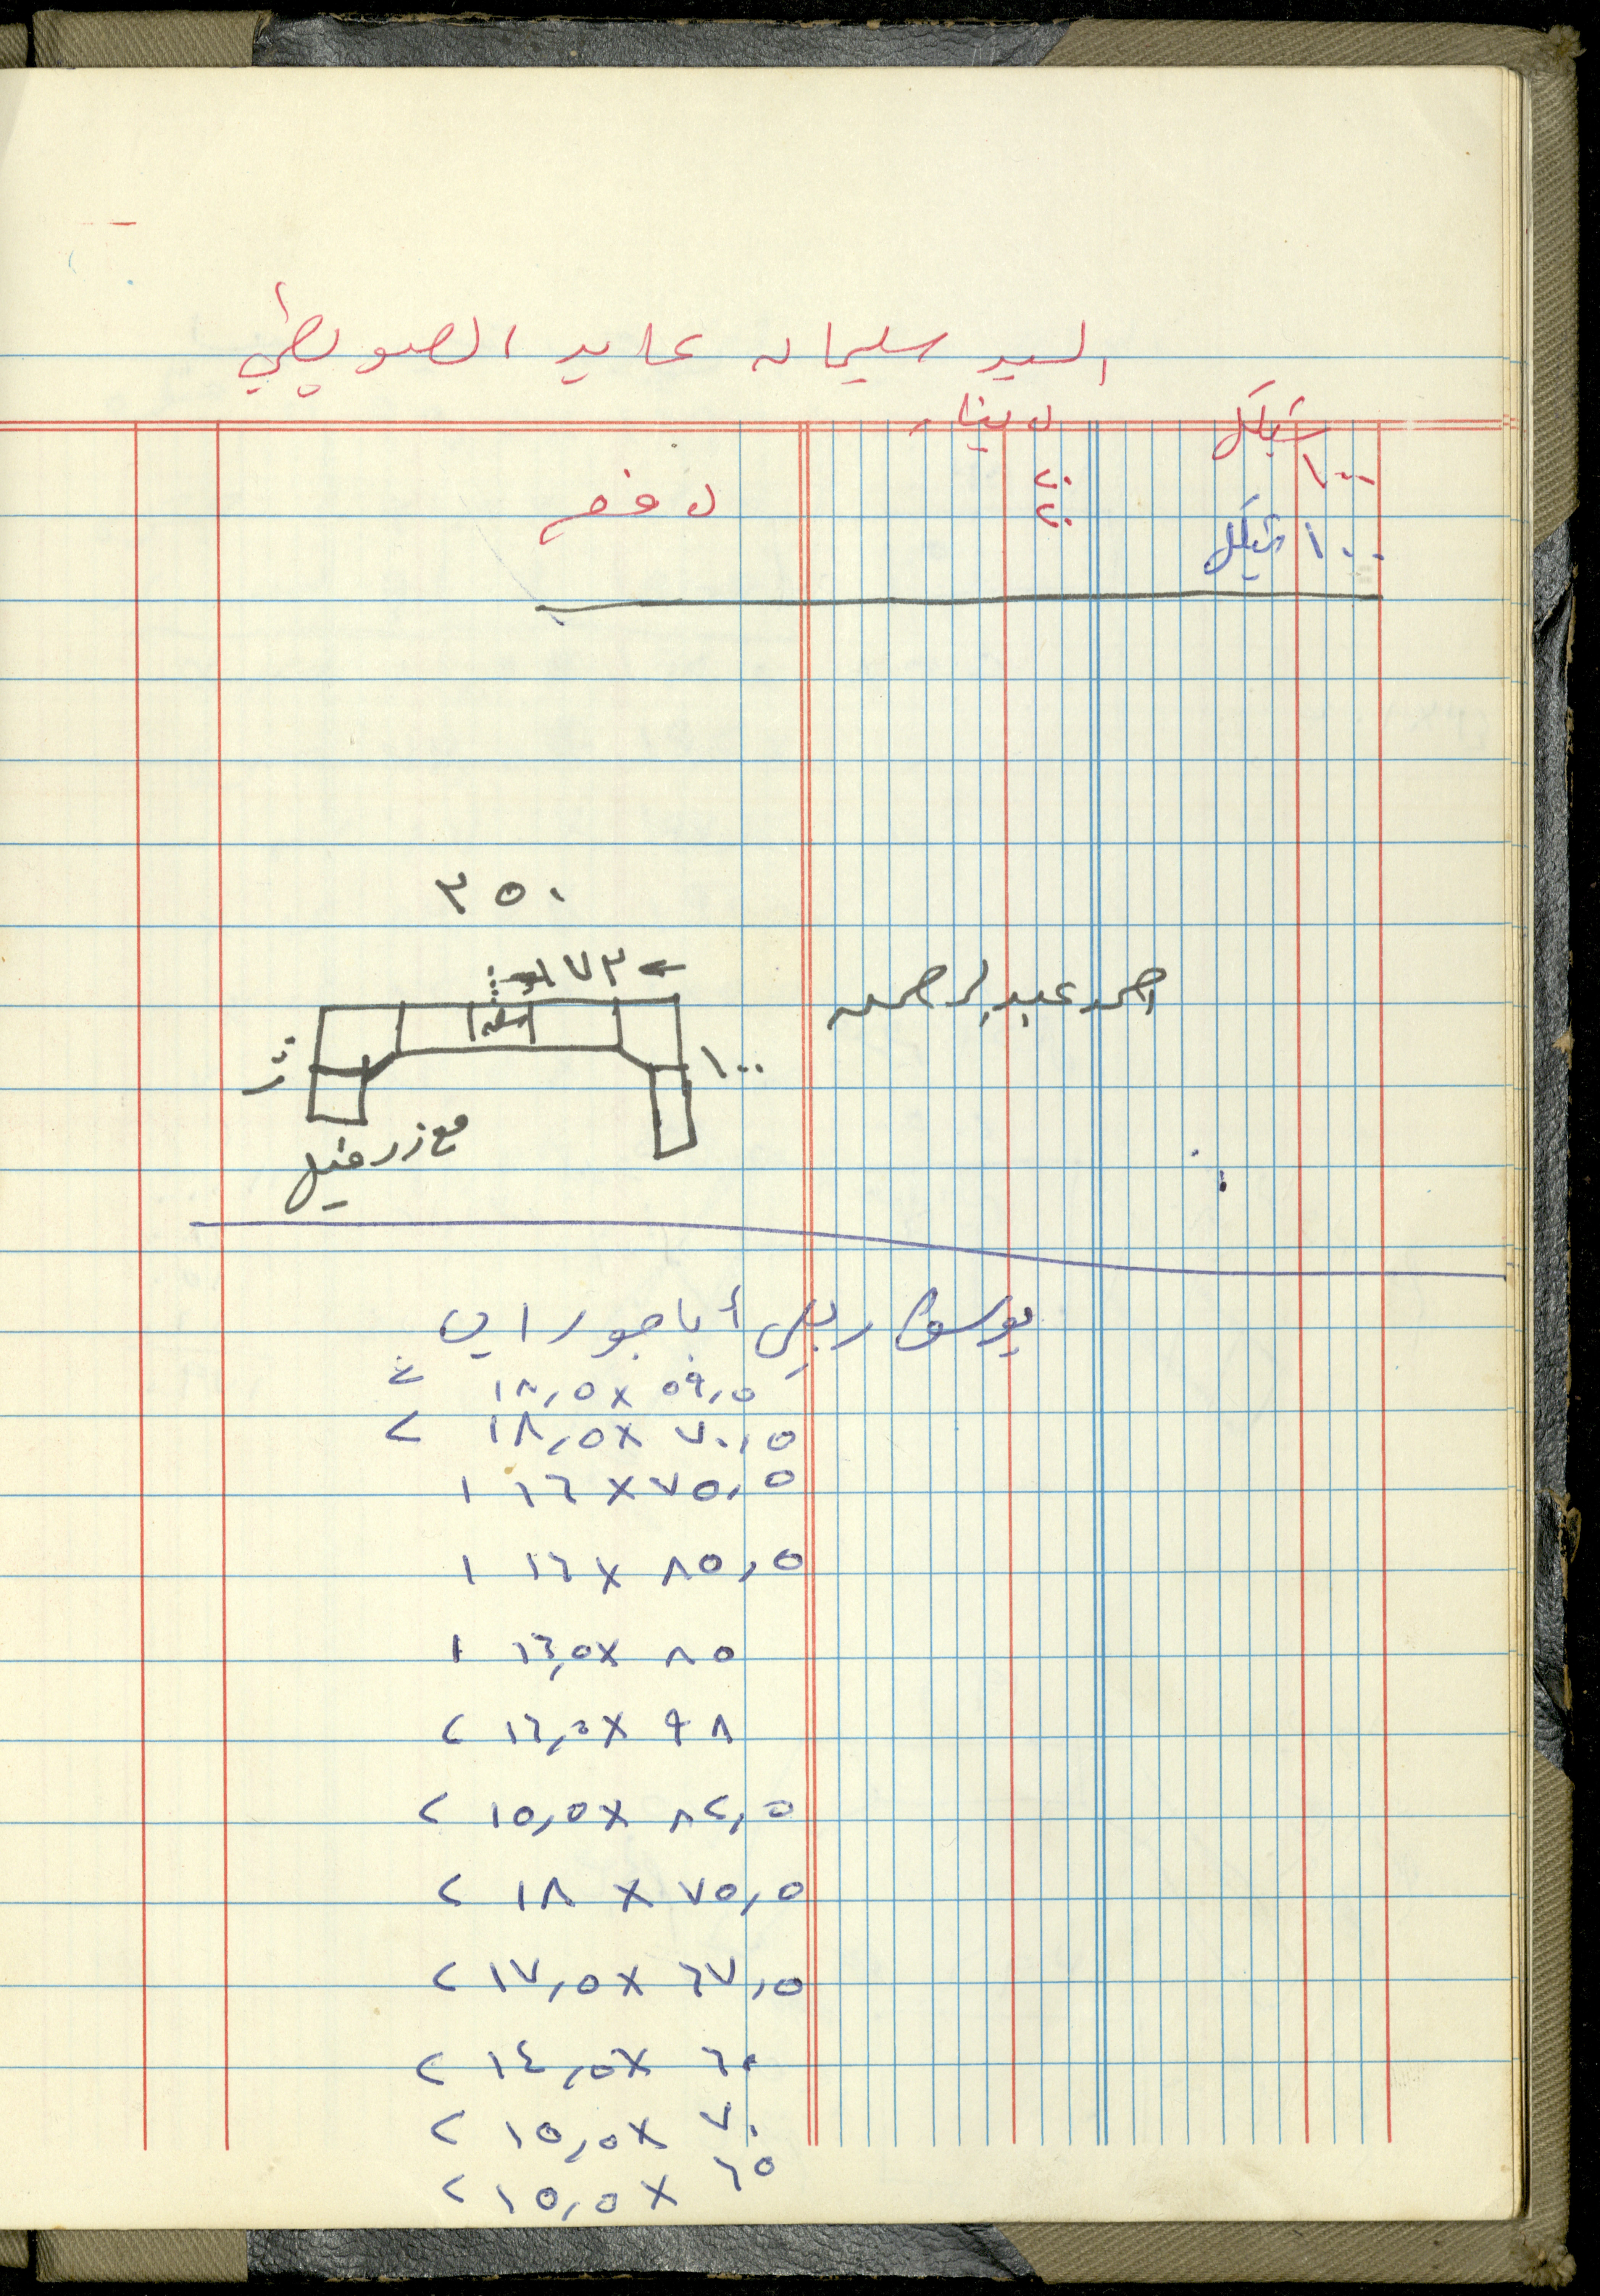 السيد سليمان عايد الصويطي
شيكل دينار
١٠٠ ٢٠ دفع
٢٠
١٠٠ شيكل
٣٥٠
١٧٣
احمد عبد الرحمن
١٠٠
مع زرفيل
يوسف ربعي أباجورات
٥٩,٥ × ١٨,٥
٧٠,٥ × ١٨,٥ ٢
٧٥,٥ × ١٦ ١
٨٥,٥ × ١٦ ١
٨٥ × ١٦,٥ ١
٩٨ × ١٦,٥ ٢
٨٢,٥ × ١٥,٥ ٢
٧٥,٥ × ١٨ ٢
٦٧,٥ × ١٧,٥ ٢
٦٠ × ١٤,٥ ٢
٧٠ × ١٥,٥ ٢
٦٥ × ١٥,٥ ٢